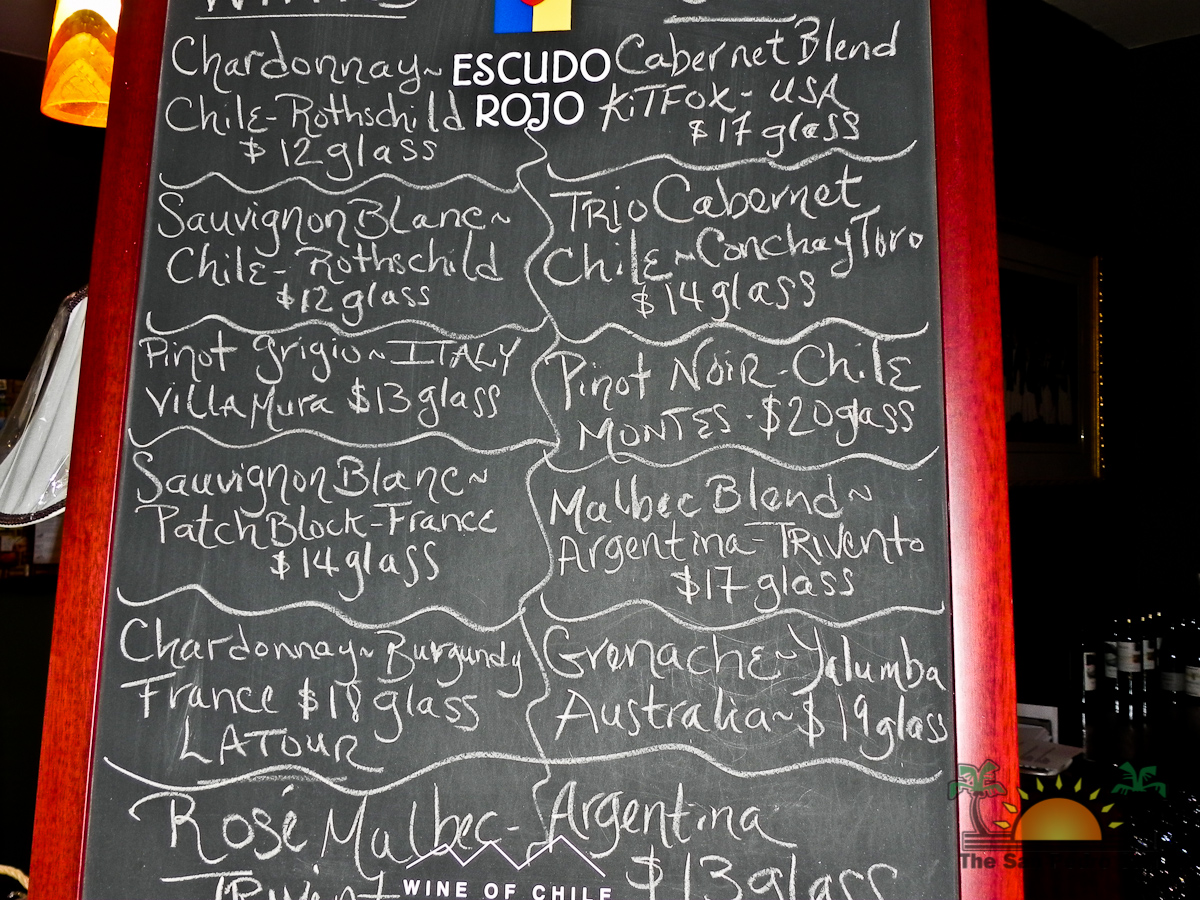 ESCUDO
ROJO
Chardonnay~
Chile-Rothschild
$12 glass
Sauvignon Blanc~
Chile-Rothschild
$12 glass
Pinot grigio~ITALY
Villa Mura $13 glass
Sauvignon Blanc~
Patch Block-France
$14 glass
Chardonnay~Burgundy
France $18 glass
LATOUR
Cabernet Blend
KiTFOX-USA
$17 glass
Trio Cabernet
Chile~Conchay Toro
$14 glass
Pinot Noir-Chile
MONTES-$20 glass
Malbec Blend~
Argentina-Trivento
$17 glass
Grenache~Yalumba
Australia~$19 glass
Rosé Malbec-Argentina
$13 glass
WINE OF CHILE
The